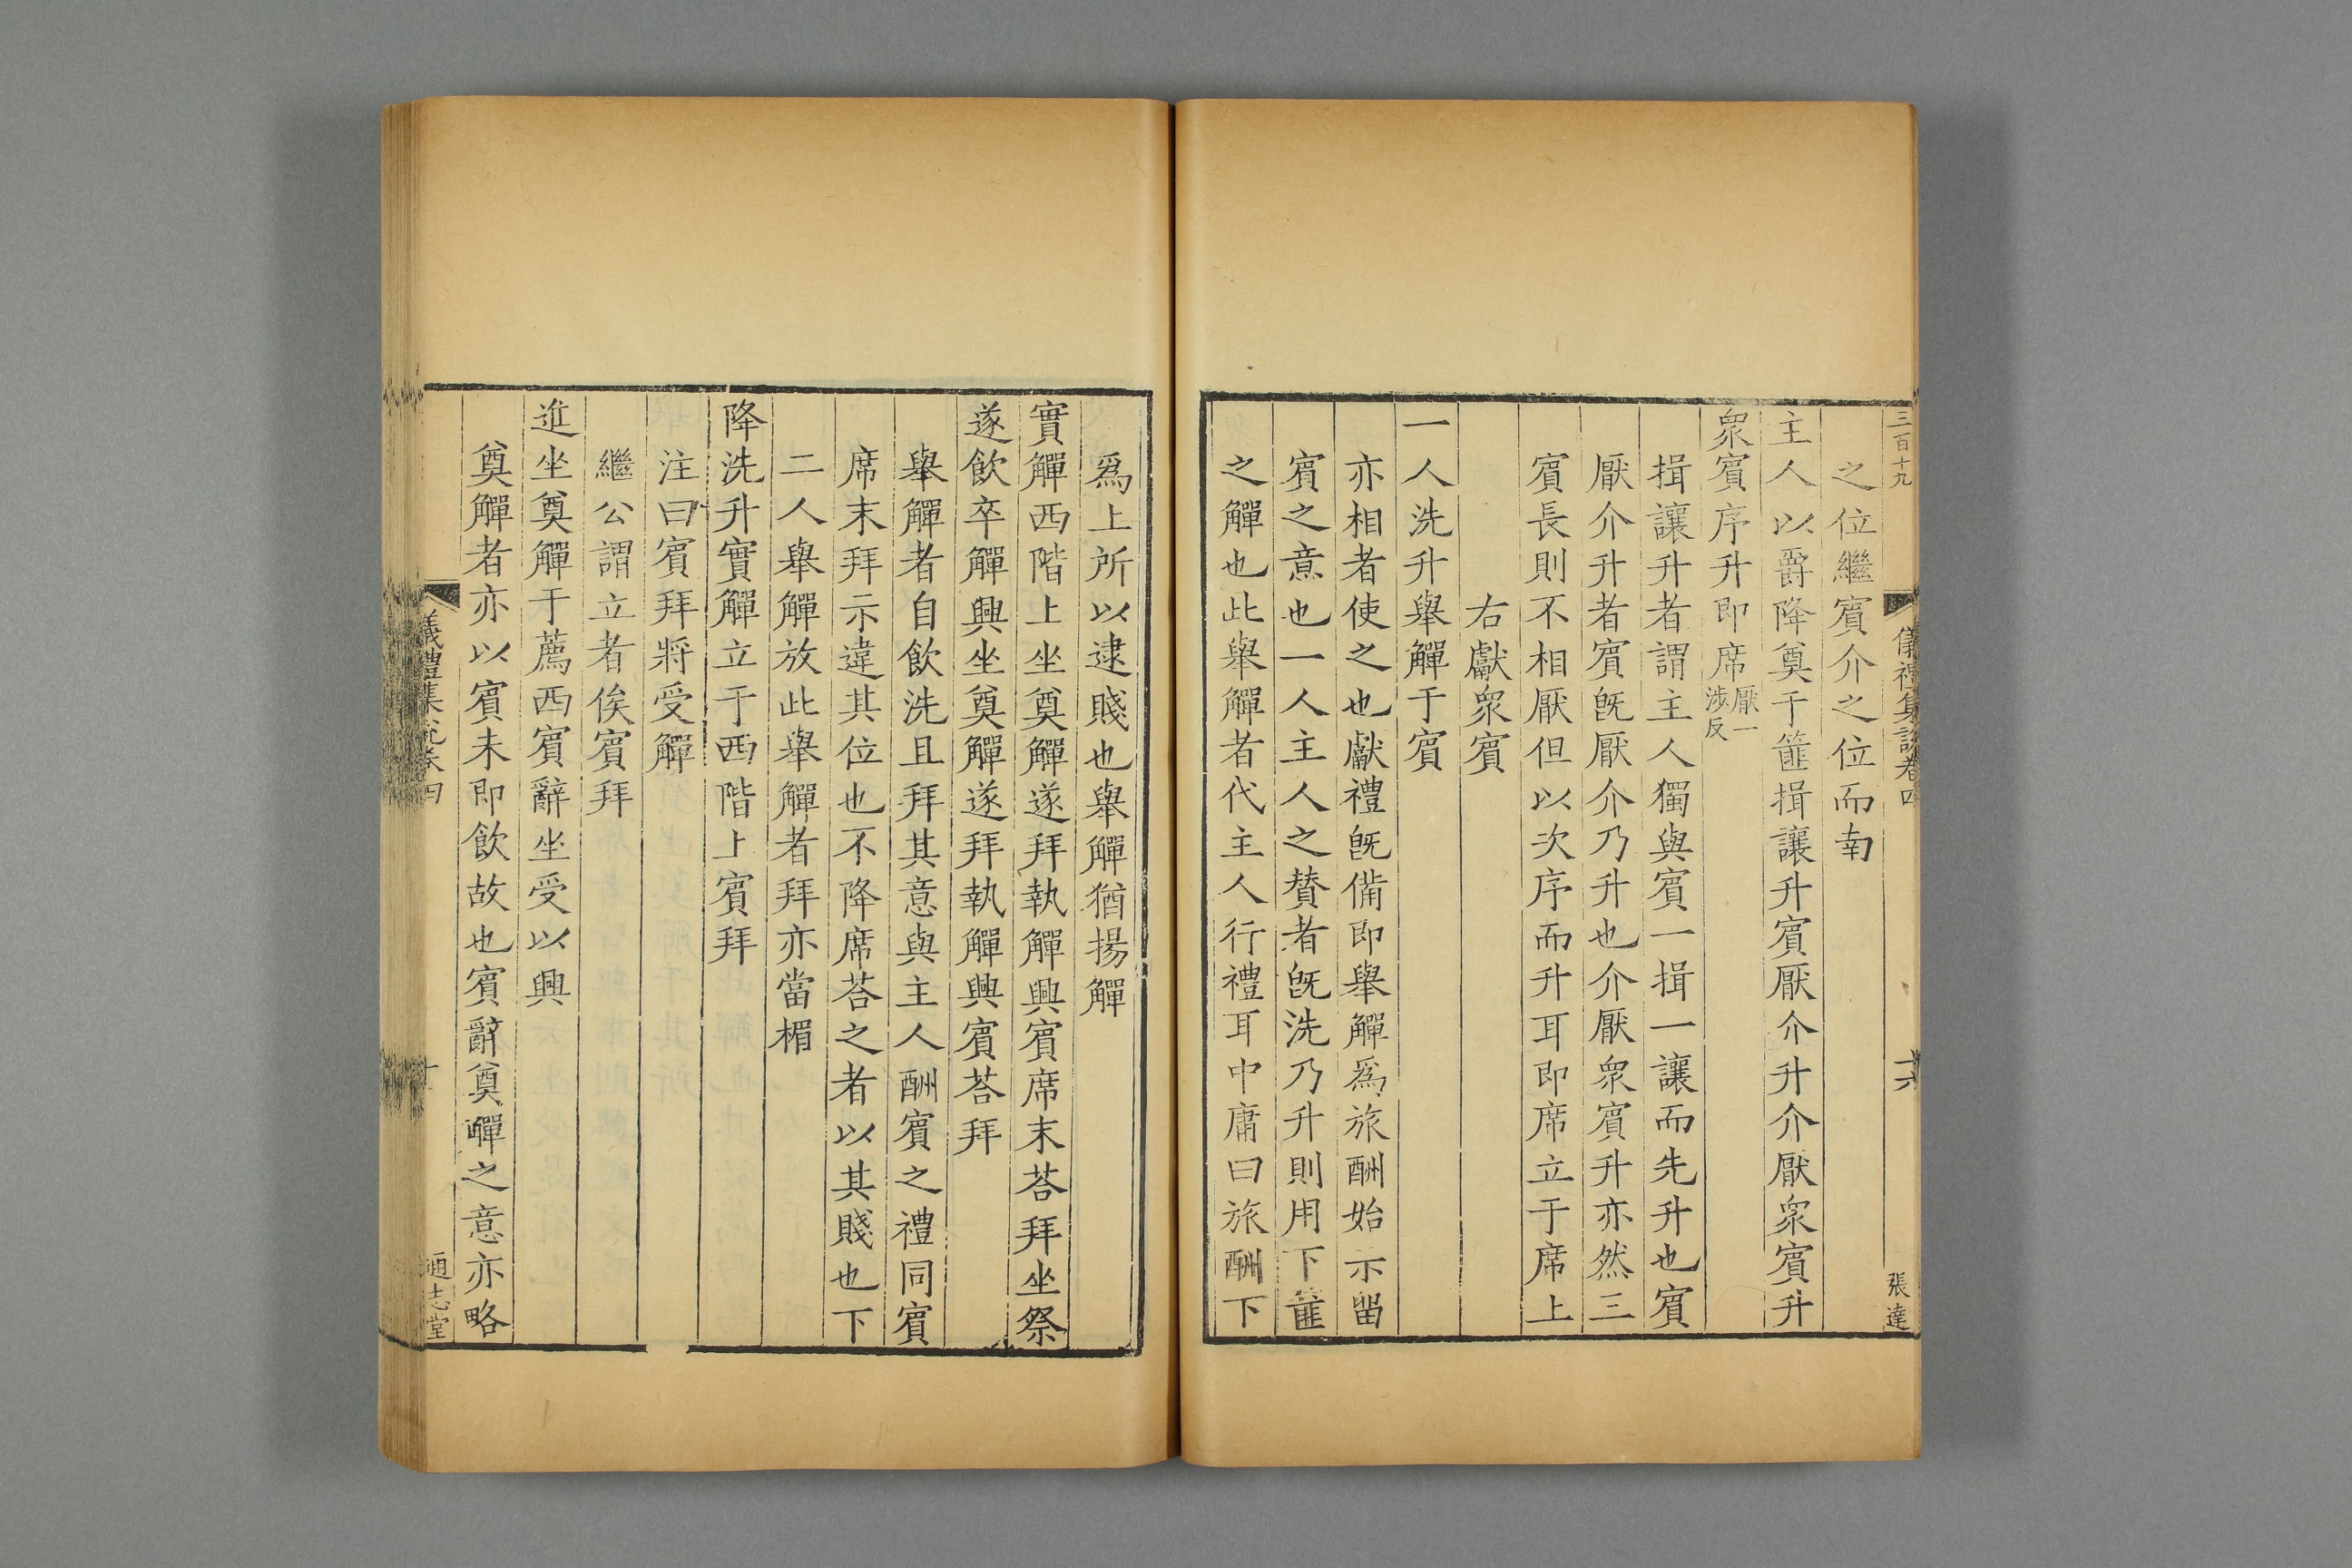 三百十九
儀禮集說卷四
十六
張達
之位繼賓介之位而南
主人以爵降奠于篚揖讓升賓厭介升介厭衆賓升
衆賓序升即席厭一涉反
揖讓升者謂主人獨與賓一揖一讓而先升也賓
厭介升者賓旣厭介乃升也介厭衆賓升亦然三
賓長則不相厭但以次序而升耳即席立于席上
右獻衆賓
一人洗升舉觶于賓
亦相者使之也獻禮旣備即舉觶爲旅酬始示留
賓之意也一人主人之贊者旣洗乃升則用下篚
之觶也此舉觶者代主人行禮耳中庸曰旅酬下
爲上所以逮賤也舉觶猶揚觶
實觶西階上坐奠觶遂拜執觶興賓席末荅拜坐祭
遂飲卒觶興坐奠觶遂拜執觶興賓荅拜
舉觶者自飲洗且拜其意與主人酬賓之禮同賓
席末拜示違其位也不降席荅之者以其賤也下
二人舉觶放此舉觶者拜亦當楣
降洗升實觶立于西階上賓拜
注曰賓拜將受觶
繼公謂立者俟賓拜
進坐奠觶于薦西賓辭坐受以興
奠觶者亦以賓未即飲故也賓辭奠觶之意亦略
儀禮集說卷四
通志堂